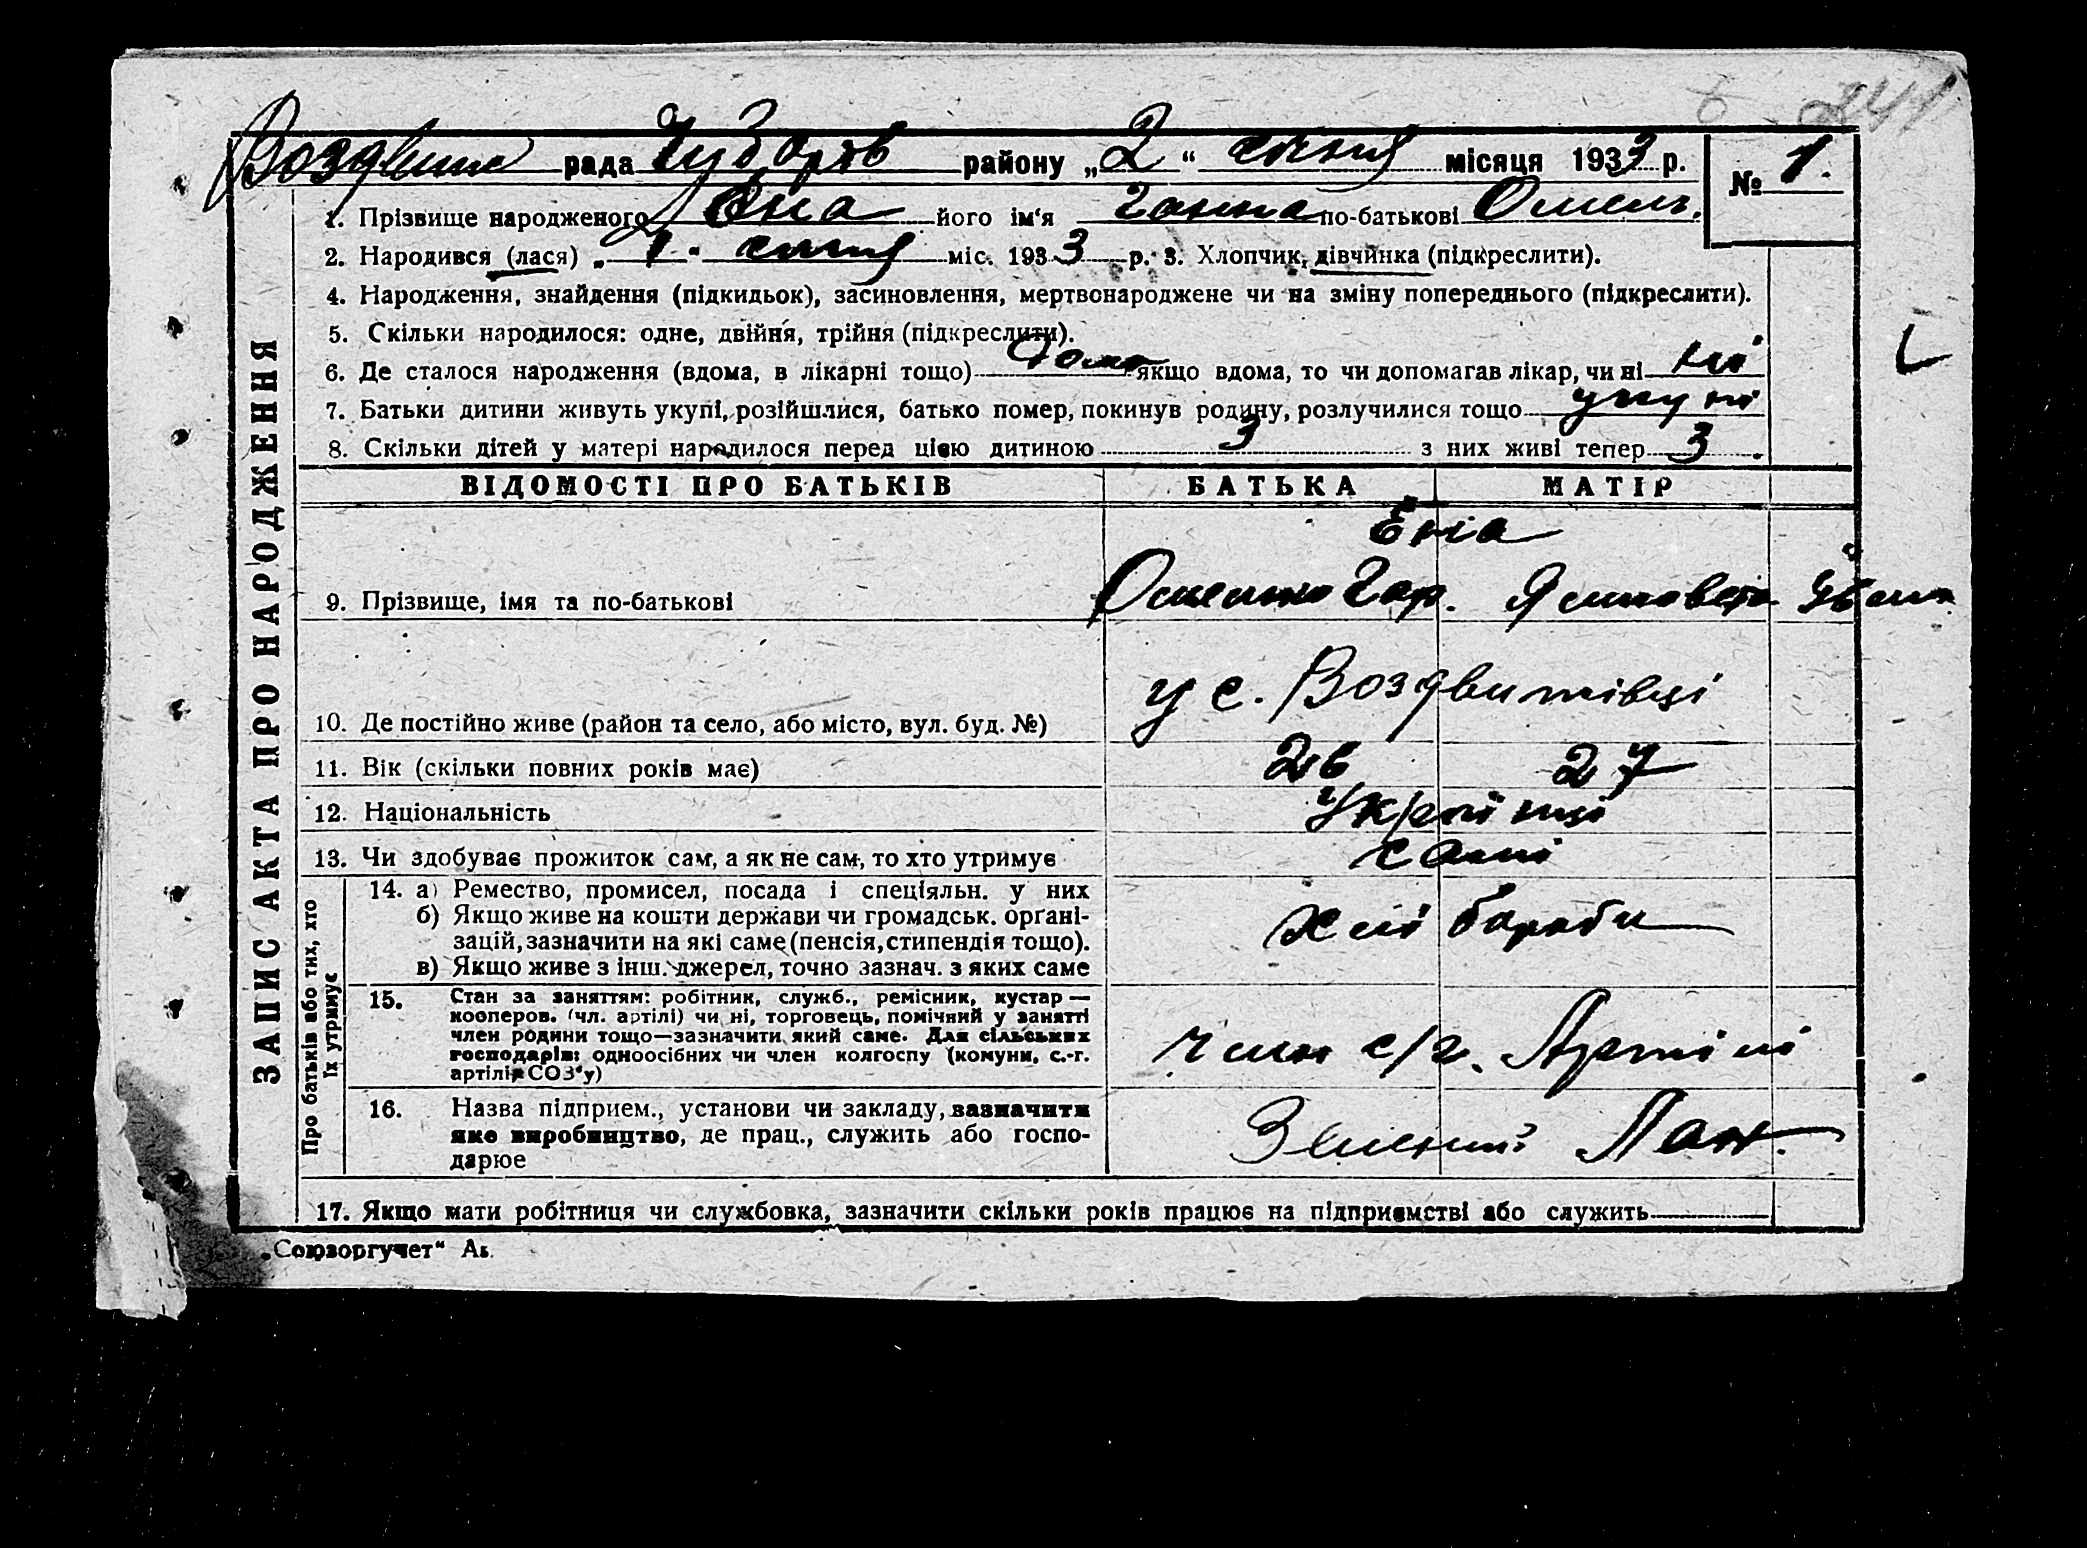 241
Воздвиж рада Чубарів району „2“ січня місяця 1933 р. № 1.
1. Прізвище народженого Єна його ім‘я Ганна по-батькові Омелн.
2. Народився (лася) „1“ січня міс. 1933 р. 3. Хлопчик, дівчинка (підкреслити).
4. Народження, знайдення (підкидьок), засиновлення, мертвонароджене чи на зміну попереднього (підкреслити).
5. Скільки народилося: одне, двійня, трійня (підкреслити).
6. Де сталося народження (вдома, в лікарні тощо) дома якщо вдома, то чи допомагав лікар, чи ні ні
7. Батьки дитини живуть укупі, розійшлися, батько помер, покинув родину, розлучилися тощо укупі
8. Скільки дітей у матері народилося перед цією дитиною 3 з них живі тепер 3.
ЗАПИС АКТА ПРО НАРОДЖЕННЯ
ВІДОМОСТІ ПРО БАТЬКІВ БАТЬКА МАТІР
Єна
9. Прізвище, імя та по-батькові Омелько Гар. Ялисовета Іван
10. Де постійно живе (район та село, або місто, вул. буд. №) у с. Воздвижівці
11. Вік (скільки повних років має) 26 27
12. Національність Українці
13. Чи здобуває прожиток сам, а як не сам, то хто утримує самі
Про батьків або тих, хто їх утримує
14. а) Ремество, промисел, посада і спеціяльн. у них
б) Якщо живе на кошти держави чи громадськ. органі-
зацій, зазначити на які саме (пенсія, стипендія тощо).
в) Якщо живе з інш. джерел, точно зазнач. з яких саме
Хлібороби
15. Стан за заняттям: робітник, служб., ремісник, кустар —
кооперов. (чл. артілі) чи ні, торговець, помічний у занятті
член родини тощо—зазначити який саме. Для сільських
господарів: одноосібних чи член колгоспу (комуни, с.-г.
артілі, СОЗ‘у)
Член с/г. Артілі
16. Назва підприєм., установи чи закладу, зазначити
яке виробництво, де прац., служить або госпо-
дарює
Зелений Лан.
17. Якщо мати робітниця чи службовка, зазначити скільки років працює на підприємстві або служить
„Союзоргучет“